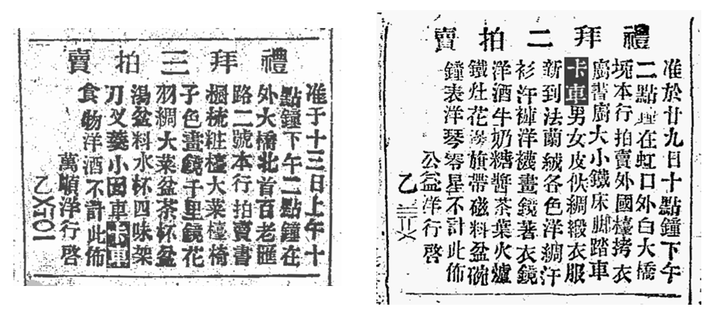 禮拜三拍賣
准于十三日上午十
點鐘下午二點鐘在
外大橋北首百老匯
路二號本行拍賣書
櫥梳粧檯大菜檯椅
子色畫鏡千里鏡花
羽綢大菜盆茶杯盆
湯盆料水杯四味架
刀叉羹小囡車卡車
食物洋酒不計此佈
萬順洋行啓
禮拜二拍賣
准於廿九日十點鐘下午
二點鐘在虹口外白大橋
堍本行拍賣外國檯拷衣
廚書廚大小鐵床脚踏車
卡車男女皮佚綢緞衣服
新到法蘭絨各色洋綢汗
衫汗褲洋襪畫鏡著衣鏡
洋酒牛奶糖醬茶葉火爐
鐵灶花旗帶磁料盆碗
鐘表洋琴零星不計此佈
公益洋行啓